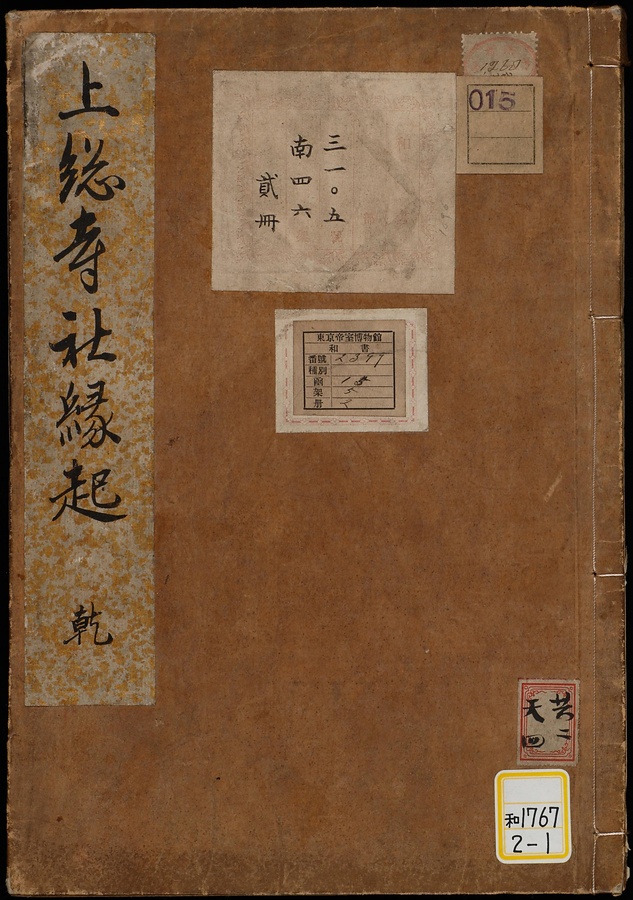 上総寺社縁起 乾
三一〇五
南四六
貳冊
015
東京帝室博物館
和書
番號 2391
種別
函 15
架 5
冊 2
共二
天四
和1767
2-1